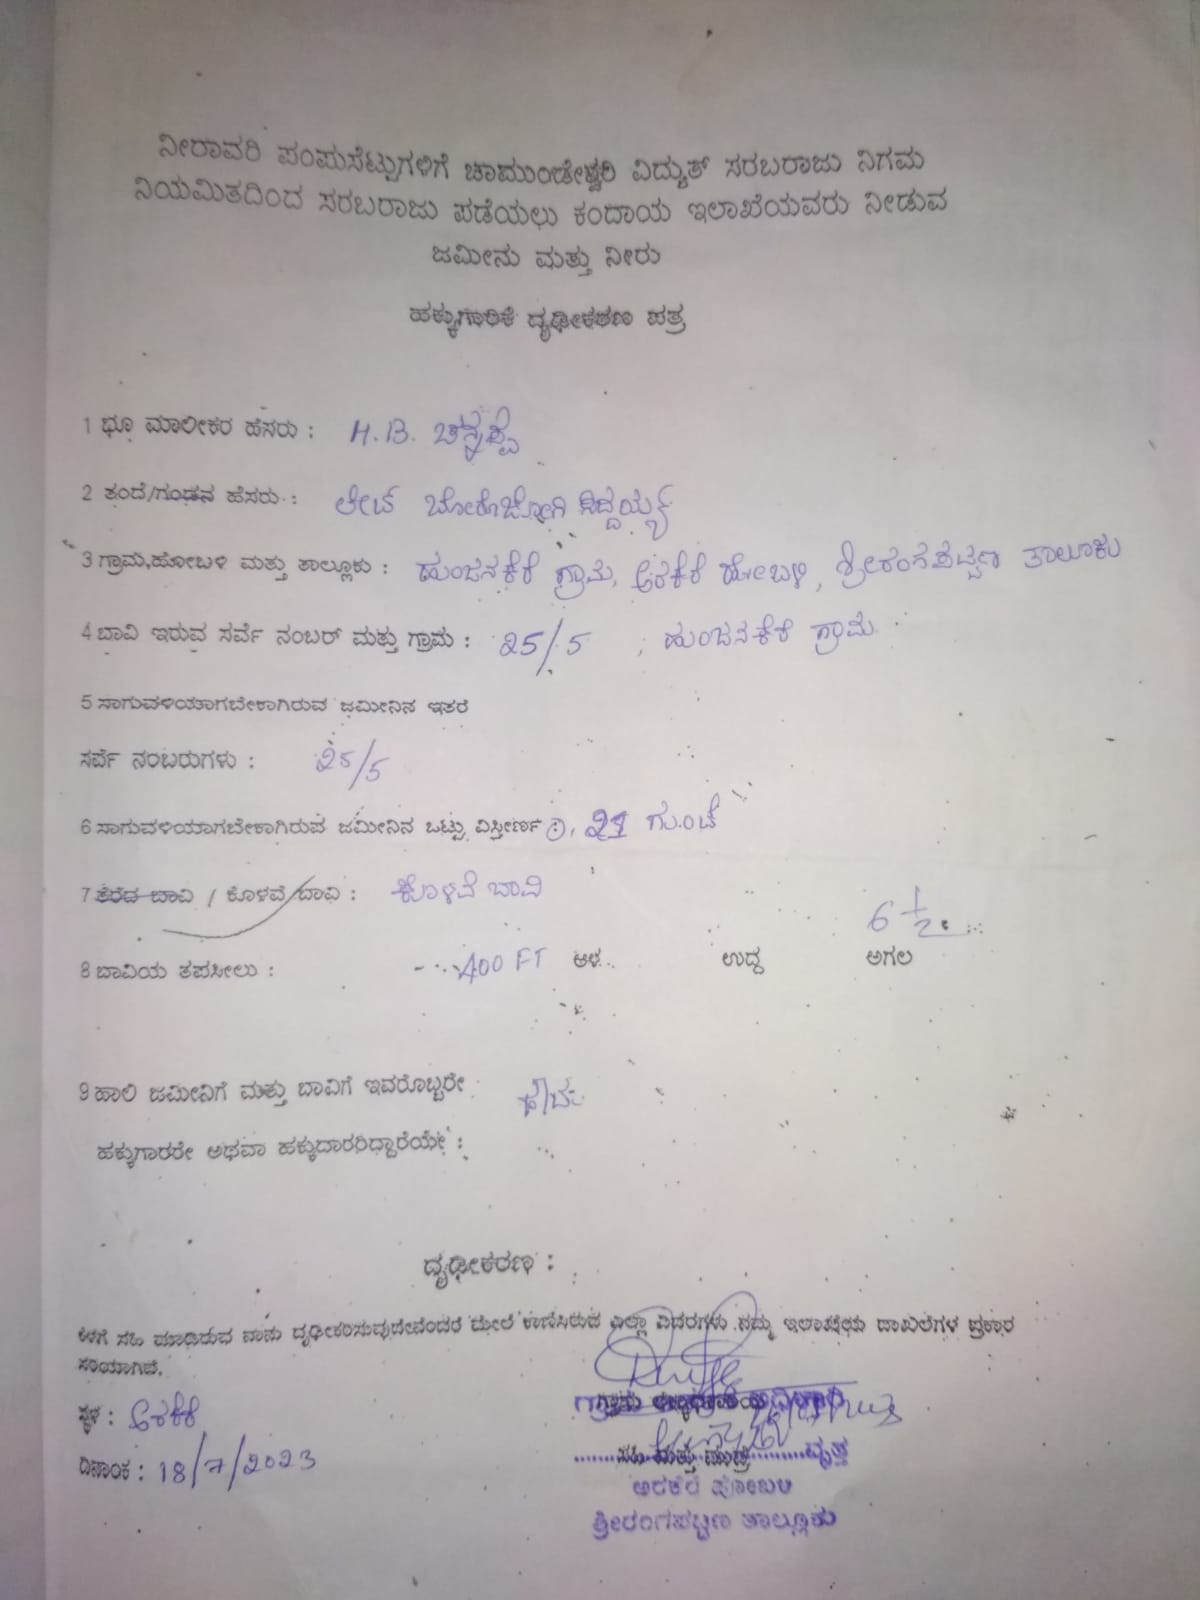 ನೀರಾವರಿ ಪಂಪುಸೆಟ್ಟುಗಳಿಗೆ ಚಾಮುಂಡೇಶ್ವರಿ ವಿದ್ಯುತ್ ಸರಬರಾಜು ನಿಗಮ
ನಿಯಮಿತದಿಂದ ಸರಬರಾಜು ಪಡೆಯಲು ಕಂದಾಯ ಇಲಾಖೆಯವರು ನೀಡುವ
ಜಮೀನು ಮತ್ತು ನೀರು
ಹಕ್ಕುಗಾರಿಕೆ ದೃಢೀಕರಣ ಪತ್ರ
1 ಭೂ ಮಾಲೀಕರ ಹೆಸರು : H.B.
2 ತಂದೆ/ಗಂಡನ ಹೆಸರು : ಲೇಟ್ ಸಿದ್ದಯ್ಯ
3 ಗ್ರಾಮ,ಹೋಬಳಿ ಮತ್ತು ತಾಲ್ಲೂಕು : ಹುಂಜನಕೆರೆ ಗ್ರಾಮ, ಅರಕೆರೆ ಹೋಬಳಿ, ಶ್ರೀರಂಗಪಟ್ಟಣ ತಾಲೂಕು
4 ಬಾವಿ ಇರುವ ಸರ್ವೆ ನಂಬರ್ ಮತ್ತು ಗ್ರಾಮ : 25/5 , ಹುಂಜನಕೆರೆ ಗ್ರಾಮ
5 ಸಾಗುವಳಿಯಾಗಬೇಕಾಗಿರುವ ಜಮೀನಿನ ಇತರೆ
ಸರ್ವೆ ನಂಬರುಗಳು : 25/5
6 ಸಾಗುವಳಿಯಾಗಬೇಕಾಗಿರುವ ಜಮೀನಿನ ಒಟ್ಟು ವಿಸ್ತೀರ್ಣ : ಗುಂಟೆ
7 ತೆರೆದ ಬಾವಿ / ಕೊಳವೆ ಬಾವಿ : ಕೊಳವೆ ಬಾವಿ
6 1/2
8 ಬಾವಿಯ ತಪಸೀಲು : 400 FT ಆಳ ಉದ್ದ ಅಗಲ
9 ಹಾಲಿ ಜಮೀನಿಗೆ ಮತ್ತು ಬಾವಿಗೆ ಇವರೊಬ್ಬರೇ
ಹಕ್ಕುಗಾರರೇ ಅಥವಾ ಹಕ್ಕುದಾರರಿದ್ದಾರೆಯೇ :
ದೃಢೀಕರಣ :
ಕೆಳಗೆ ಸಹಿ ಮಾಡಿರುವ ನಾನು ದೃಢೀಕರಿಸುವುದೇನೆಂದರೆ ಮೇಲೆ ಕಾಣಿಸಿರುವ ಎಲ್ಲಾ ವಿವರಗಳು ನಮ್ಮ ಇಲಾಖೆಯ ದಾಖಲೆಗಳ ಪ್ರಕಾರ
ಸರಿಯಾಗಿದೆ.
ಸ್ಥಳ : ಅರಕೆರೆ
ದಿನಾಂಕ : 18/7/2023
ಸಹಿ ಮತ್ತು ಮುದ್ರೆ ವೃತ್ತ
ಅರಕೆರೆ ಹೋಬಳಿ
ಶ್ರೀರಂಗಪಟ್ಟಣ ತಾಲ್ಲೂಕು